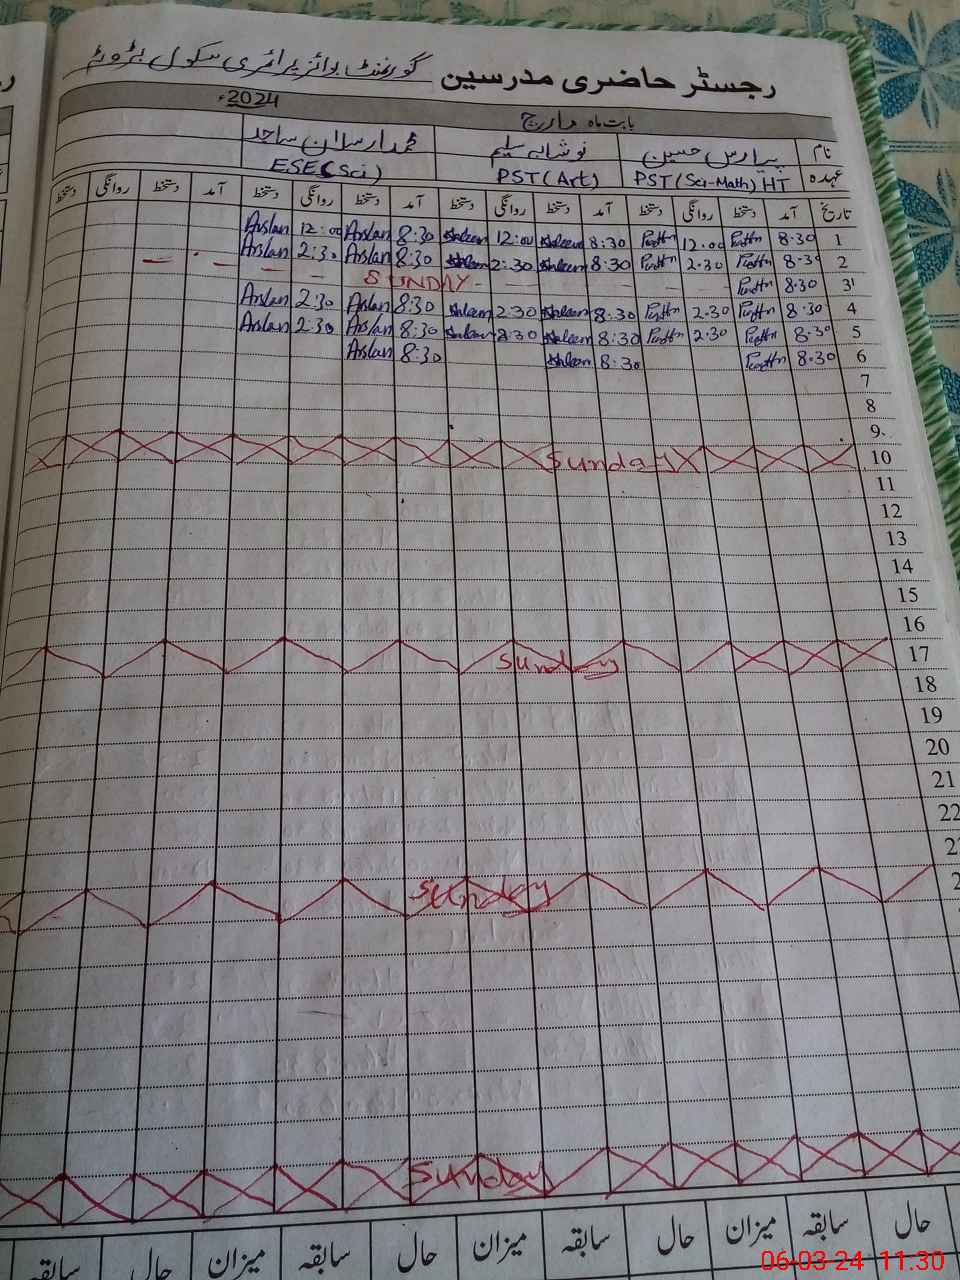 رجسٹر حاضری مدرسین گورنمنٹ بوائز پرائمری سکول
بابت ماہ مارچ 2024ء
نام حسین نوشابہ سلیم محمد ارسلان ساجد
عہدہ PST (Sci-Math) HT PST (Art) ESE (Sci)
تاریخ آمد دستخط روانگی دستخط آمد دستخط روانگی دستخط آمد دستخط روانگی دستخط آمد دستخط روانگی دستخط
1 8.30 12.00 8:30 Saleem 12:00 Saleem 8:30 Arslan 12:00 Arslan
2 8.30 2.30 8:30 Saleem 2:30 Saleem 8:30 Arslan 2:30 Arslan
3 8.30 SUNDAY
4 8.30 2.30 8:30 Saleem 2:30 Saleem 8:30 Arslan 2:30 Arslan
5 8.30 2.30 8:30 Saleem 2:30 Saleem 8:30 Arslan 2:30 Arslan
6 8.30 8:30 Saleem 8:30 Arslan
7
8
9
10 Sunday
11
12
13
14
15
16
17 Sunday
18
19
20
21
22
2
2 Sunday
Sunday
حال سابقہ میزان حال سابقہ میزان حال سابقہ میزان حال سابقہ
06-03-24 11.30